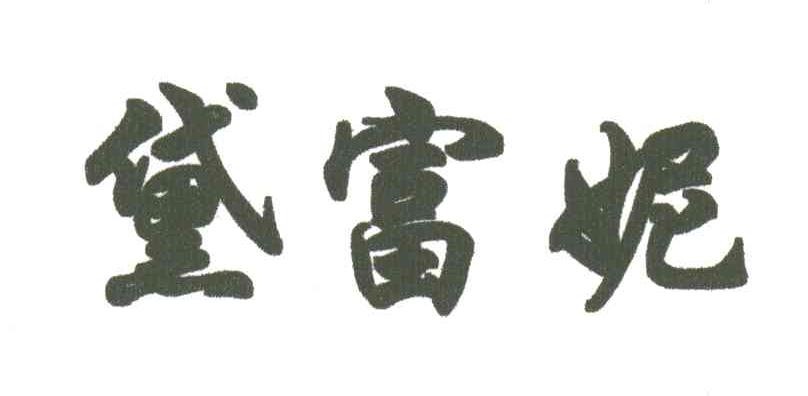 黛富妮